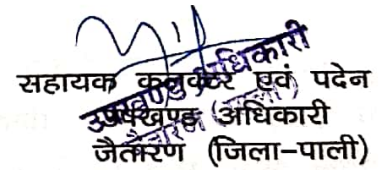 सहायक कलक्टर एवं पदेन
उपखण्ड अधिकारी
जैतारण (जिला-पाली)
उपखण्ड अधिकारी